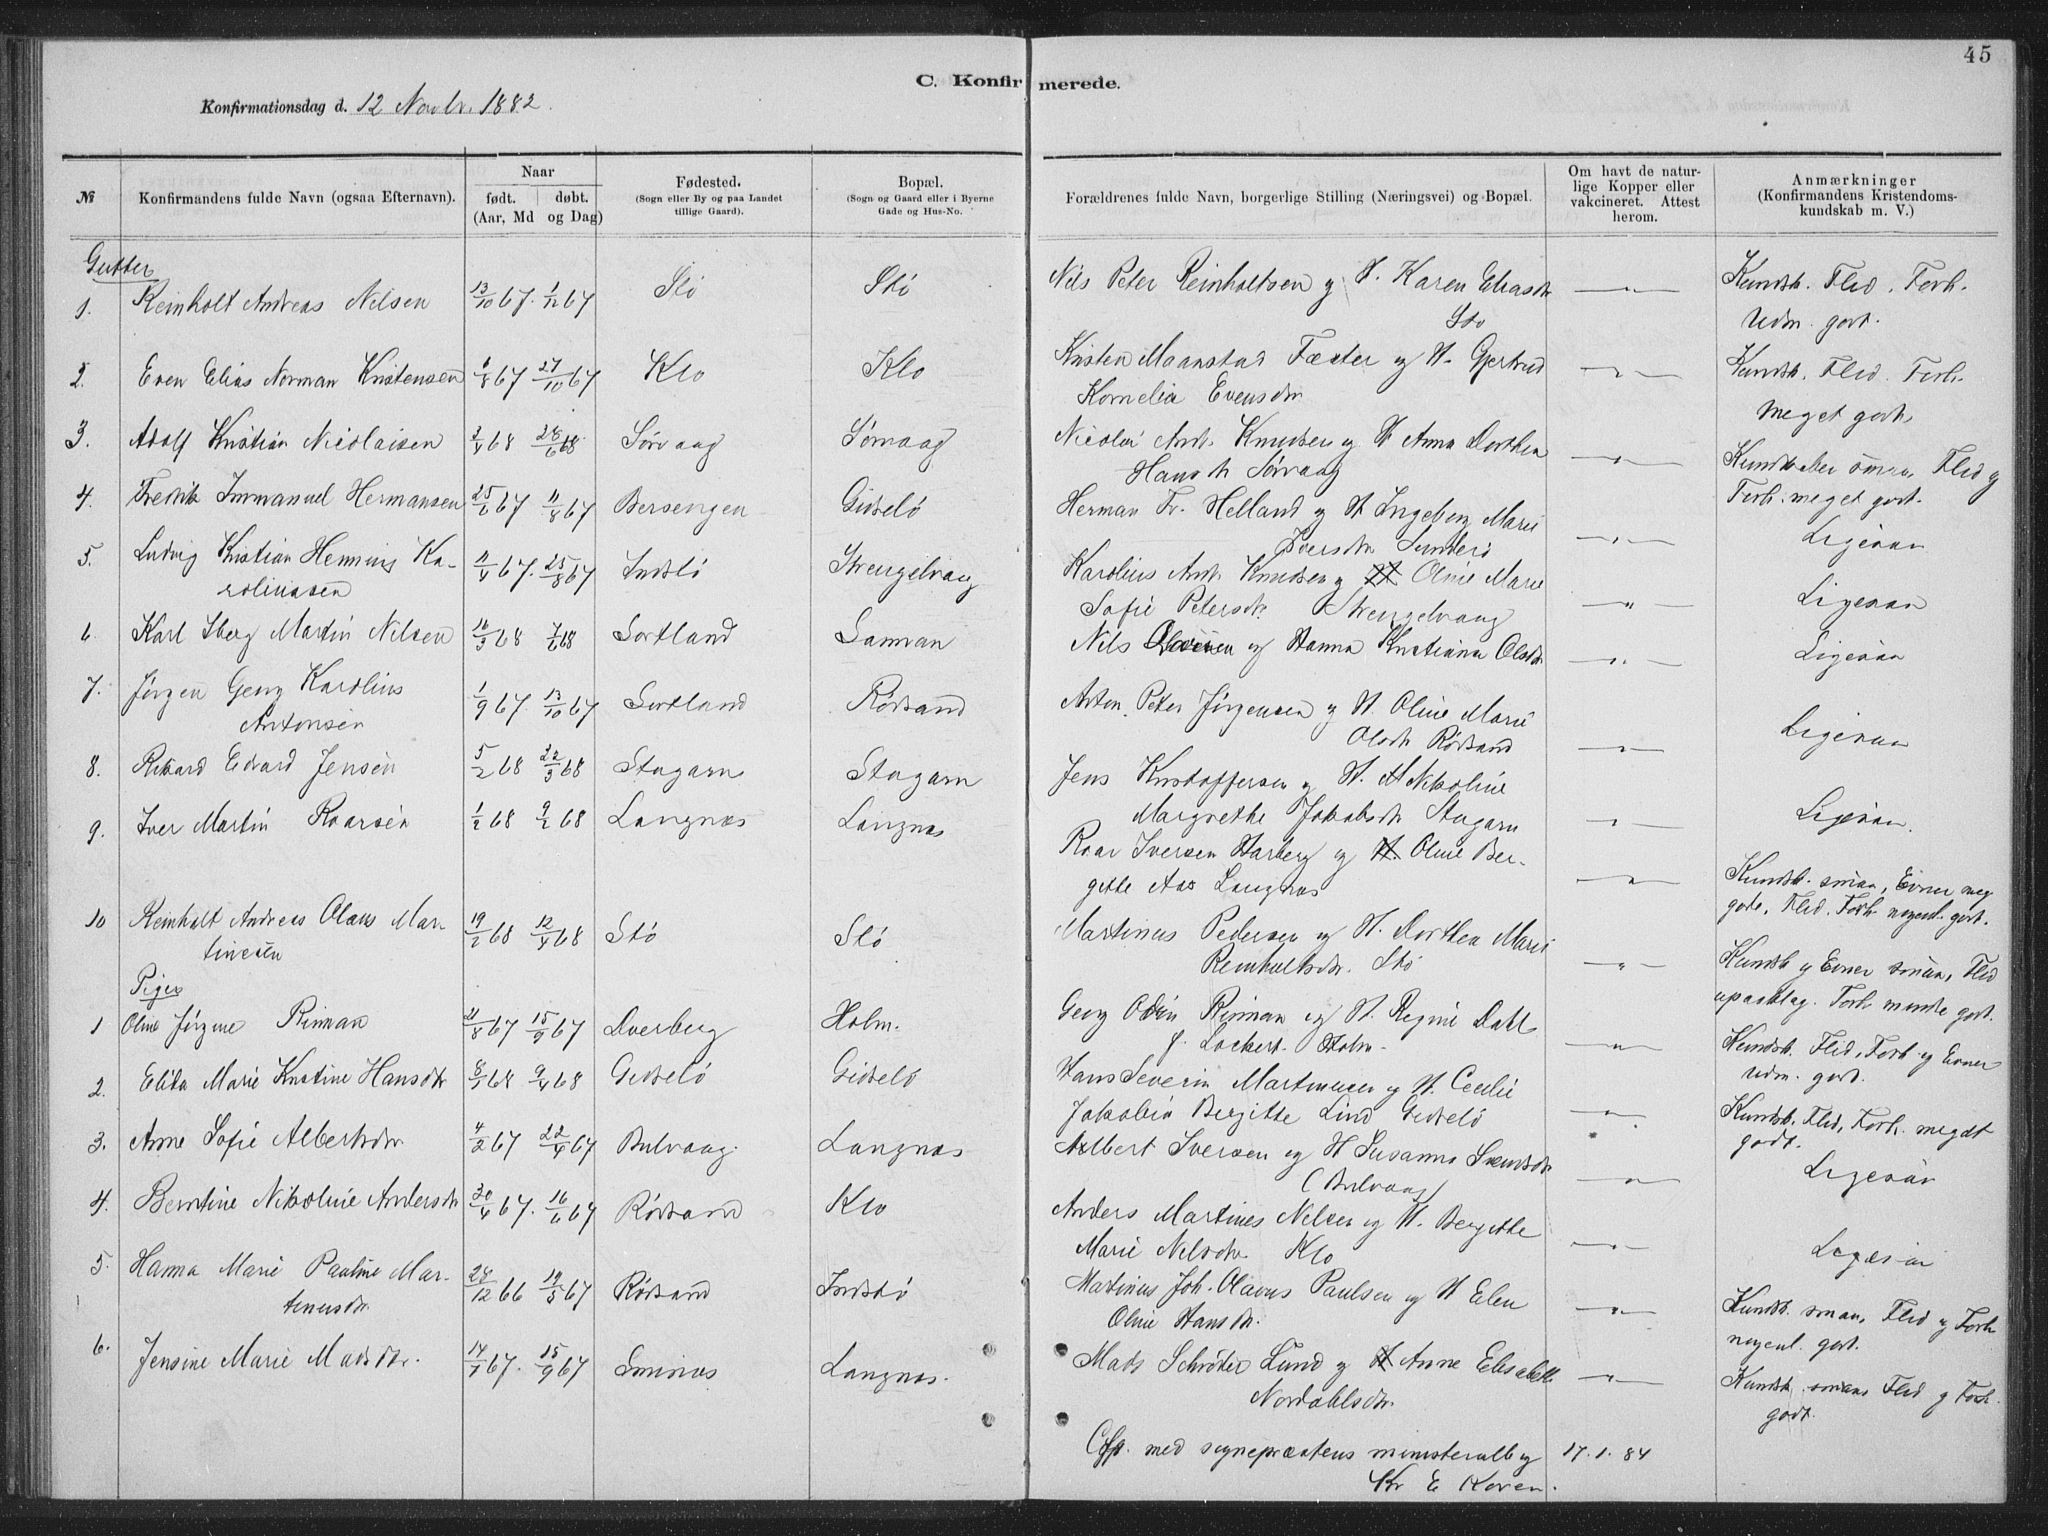 45
C. Konfirmerede.
Konfirmationsdag d. 12 Novbr. 1882.
№
Konfirmandens fulde Navn (ogsaa Efternavn).
Naar
født. døbt.
(Aar, Md og Dag)
Fødested.
(Sogn eller By og paa Landet
tillige Gaard).
Bopæl.
(Sogn og Gaard eller i Byerne
Gade og Hus-No.
Forældrenes fulde Navn, borgerlige Stilling (Næringsvei) og Bopæl.
Om havt de natur-
lige Kopper eller
vakcineret. Attest
herom.
Anmærkninger
(Konfirmandens Kristendoms-
kundskab m. V.)
Gutter
1. Reinholt Andreas Nilsen 13/10 67. 1/12 67 Stø Stø Nils Peter Reinholtsen og H. Karen Eliasdr — " — Kundsk. Flid. Forh.
Stø Udm. godt.
2. Even Elias Norman Kristensen 6/8 67 27/10 67 Klo Klo Kristen Maanstad Fæster og H. Gjertrud — " — Kundsk. Flid. Forh.
Kornelia Evensdr. Meget godt.
3. Adolf Kristian Nicolaisen 2/4 68 28/6 68 Sørvaag Sørvaag Nicolai Andr. Knudsen og H Anna Dorthea — " — Kundskaber smaa, Flid og
Hansdr Sørvaag Forh. meget godt.
4. Fredrik Immanuel Hermansen 25/6 67 11/8 67 Bersengen Gisløl Herman Fr. Helland og H Ingeborg Marie — " — Ligesaa
Iversdr.
5. Ludvig Kristian Henning Ka- 11/4 67. 25/8 67 Indstø Strengelvaag Karolius Andr. Knudsen og H Oline Marie — " — Ligesaa
roliussen Sofie Petersdr. Strengelvaag
6. Karl Iberg Martin Nilsen 16/3 68 7/6 68 Sortland Samvan Nils og Hanna Kristiana Olsdr — " — Ligesaa
7. Jørgen Georg Karolius 1/9 67. 13/10 67 Sortland Rødsand Anton Peter Jørgensen og H. Oline Marie — " — Ligesaa
Antonsen Olsdr Rødsand
8. Rikard Edvard Jensen 5/2 68 22/3 68 Stagarn Stagarn Jens Kristoffersen og H. Nikoline — " — Ligesaa.
Margrethe Jakobsdr Stagarn
9. Iver Martin Roarsen 1/2 68 9/2 68 Langnæs Langnæs Roar Iversen Harberg og H. Oline Ber- — " — Kundsk. smaa, Evner meg
gitte Aas Langnæs gode, Flid. Forh. nogenl. godt.
10 Reinholt Andreas Olaus Mar- 19/2 68 12/4 68 Stø Stø Martinus Pedersen og H. Dorthea Marie — " — Kundsk og Evner smaa, Flid
tinesen Reinholtsdr. Stø upaaklag. Forh mindre godt.
Piger
1 Oline Jørgine Rinman 21/8 67 15/9 67 Dverberg Holm. Georg Odin Rinman og H. Regine Dahl — " — Kundsk. Flid, Forh og Evner
f. Lockert. Holm. Udm. godt.
2. Elida Marie Kristine Hansdr 8/1 68 9/4 68 Gidsløl Gidsløl Hans Severin Martinusen og H. Cecilie — " — Kundsk. Flid, Forh. meget
Jakobia Bergitte Lind godt.
3. Anne Sofie Albertsdr 4/2 67 22/4 67 Bulvaag. Langnæs Albert Iversen og H Susanna Svendsdr — " — Ligesaa
(Bulvaag)
4. Berntine Nikoline Andersdr 30/4 67. 16/6 67 Rødsand Klo Anders Martines Nilsen og H. Bergitte — " — Ligesaa
Marie Nilsdr Klo
5. Hanna Marie Pauline Mar- 28/12 66 19/5 67 Rødsand Indstø Martinus Joh. Olavus Paulsen og H Elen — " — Kundsk. smaa, Flid og Forh
tinusdr. Oline Hansdr. nogenl. godt.
6. Jensine Marie Madsdr. 14/7 67. 15/9 67 Sminæs Langnæs. Mads Schrøder Lund og H Anne Elisabeth — " — Kundsk. smaa Flid og Forh.
Nordahlsdr. godt.
Cfp. med sognepræstens ministeralb og 17. 1. 84
Kr E Koren.